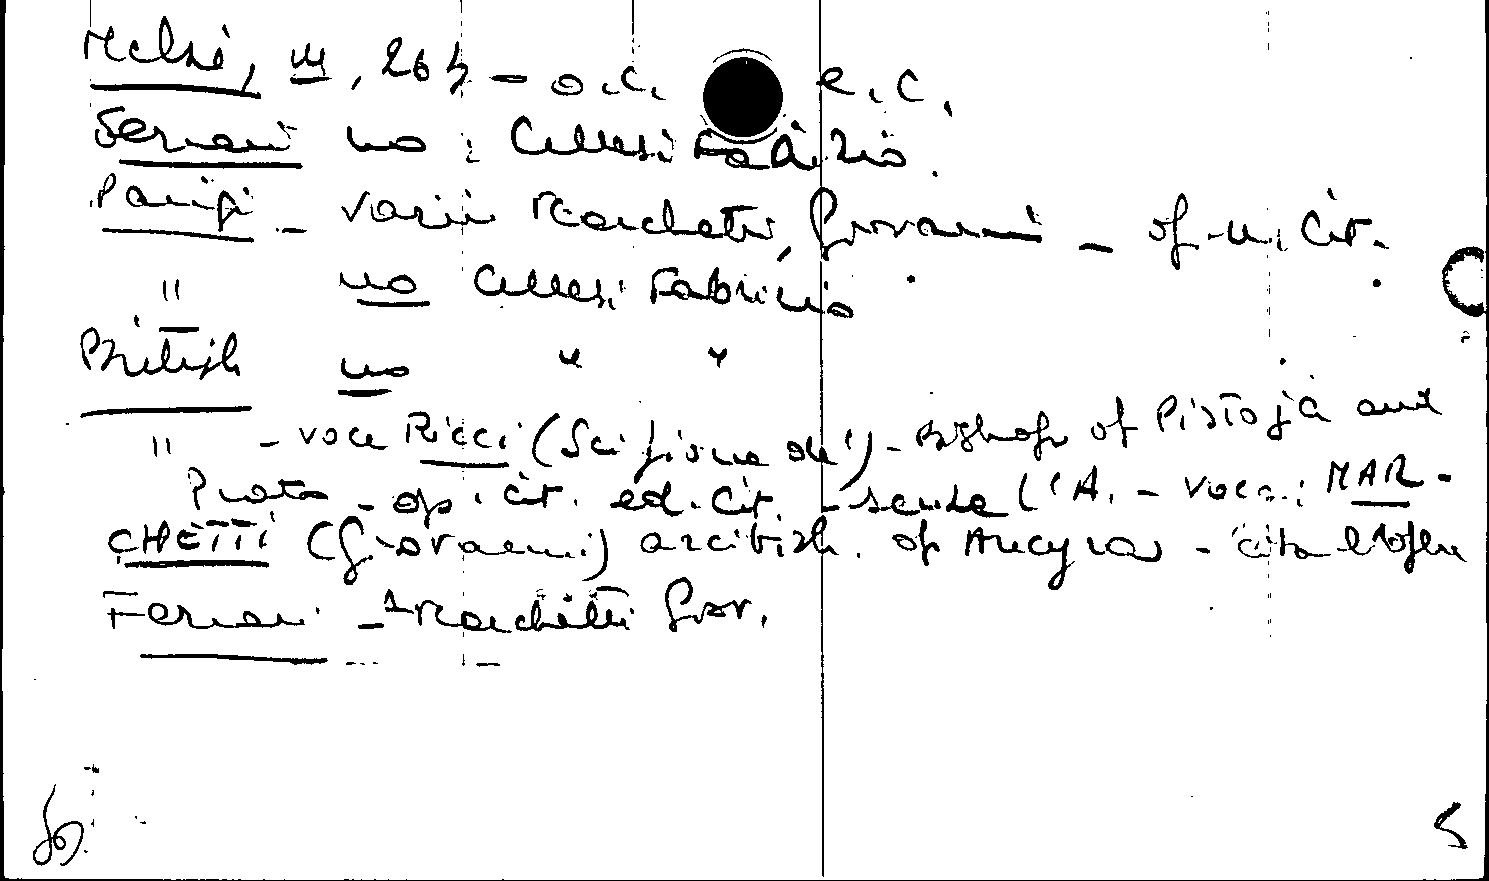 Melzi, III, 264 - o.c. e.c.
Fernani no : Cellesi Fabrizio.
Parigi - varii Marchetti, Giovanni - op. cit.
" no Cellesi Fabrizio
British no " "
" - voce Ricci (Scipione de') - Bishop of Pistoja and
Prato - op. cit. ed. cit. - senza l'A. - voce: MAR-
CHETTI (Giovanni) arcibish. of Ancyra - cita
- Marchetti Giov.
5